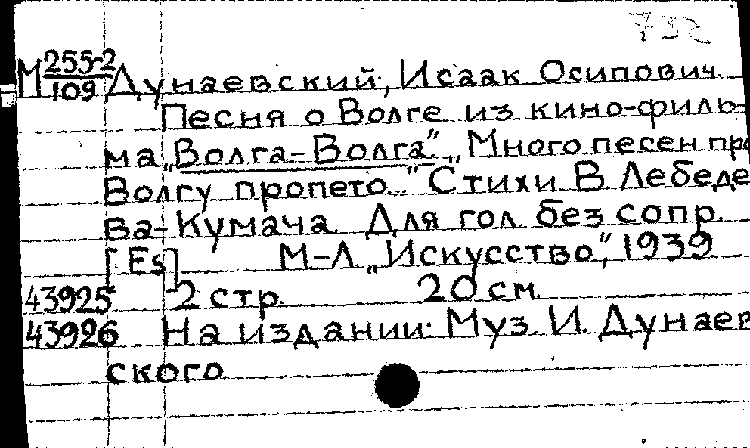 732
М 255-2/109 Дунаевский, Исаак Осипович.
Песня о Волге из кино-филь-
ма „Волга-Волга“ „Много песен про
Волгу пропето..." Стихи В. Лебеде-
ва-Кумача. Для гол. без сопр.
[Es] М-Л „Искусство", 1939
43925 2 стр. 20 см.
43926 На издании: Муз. И. Дунаев-
ского